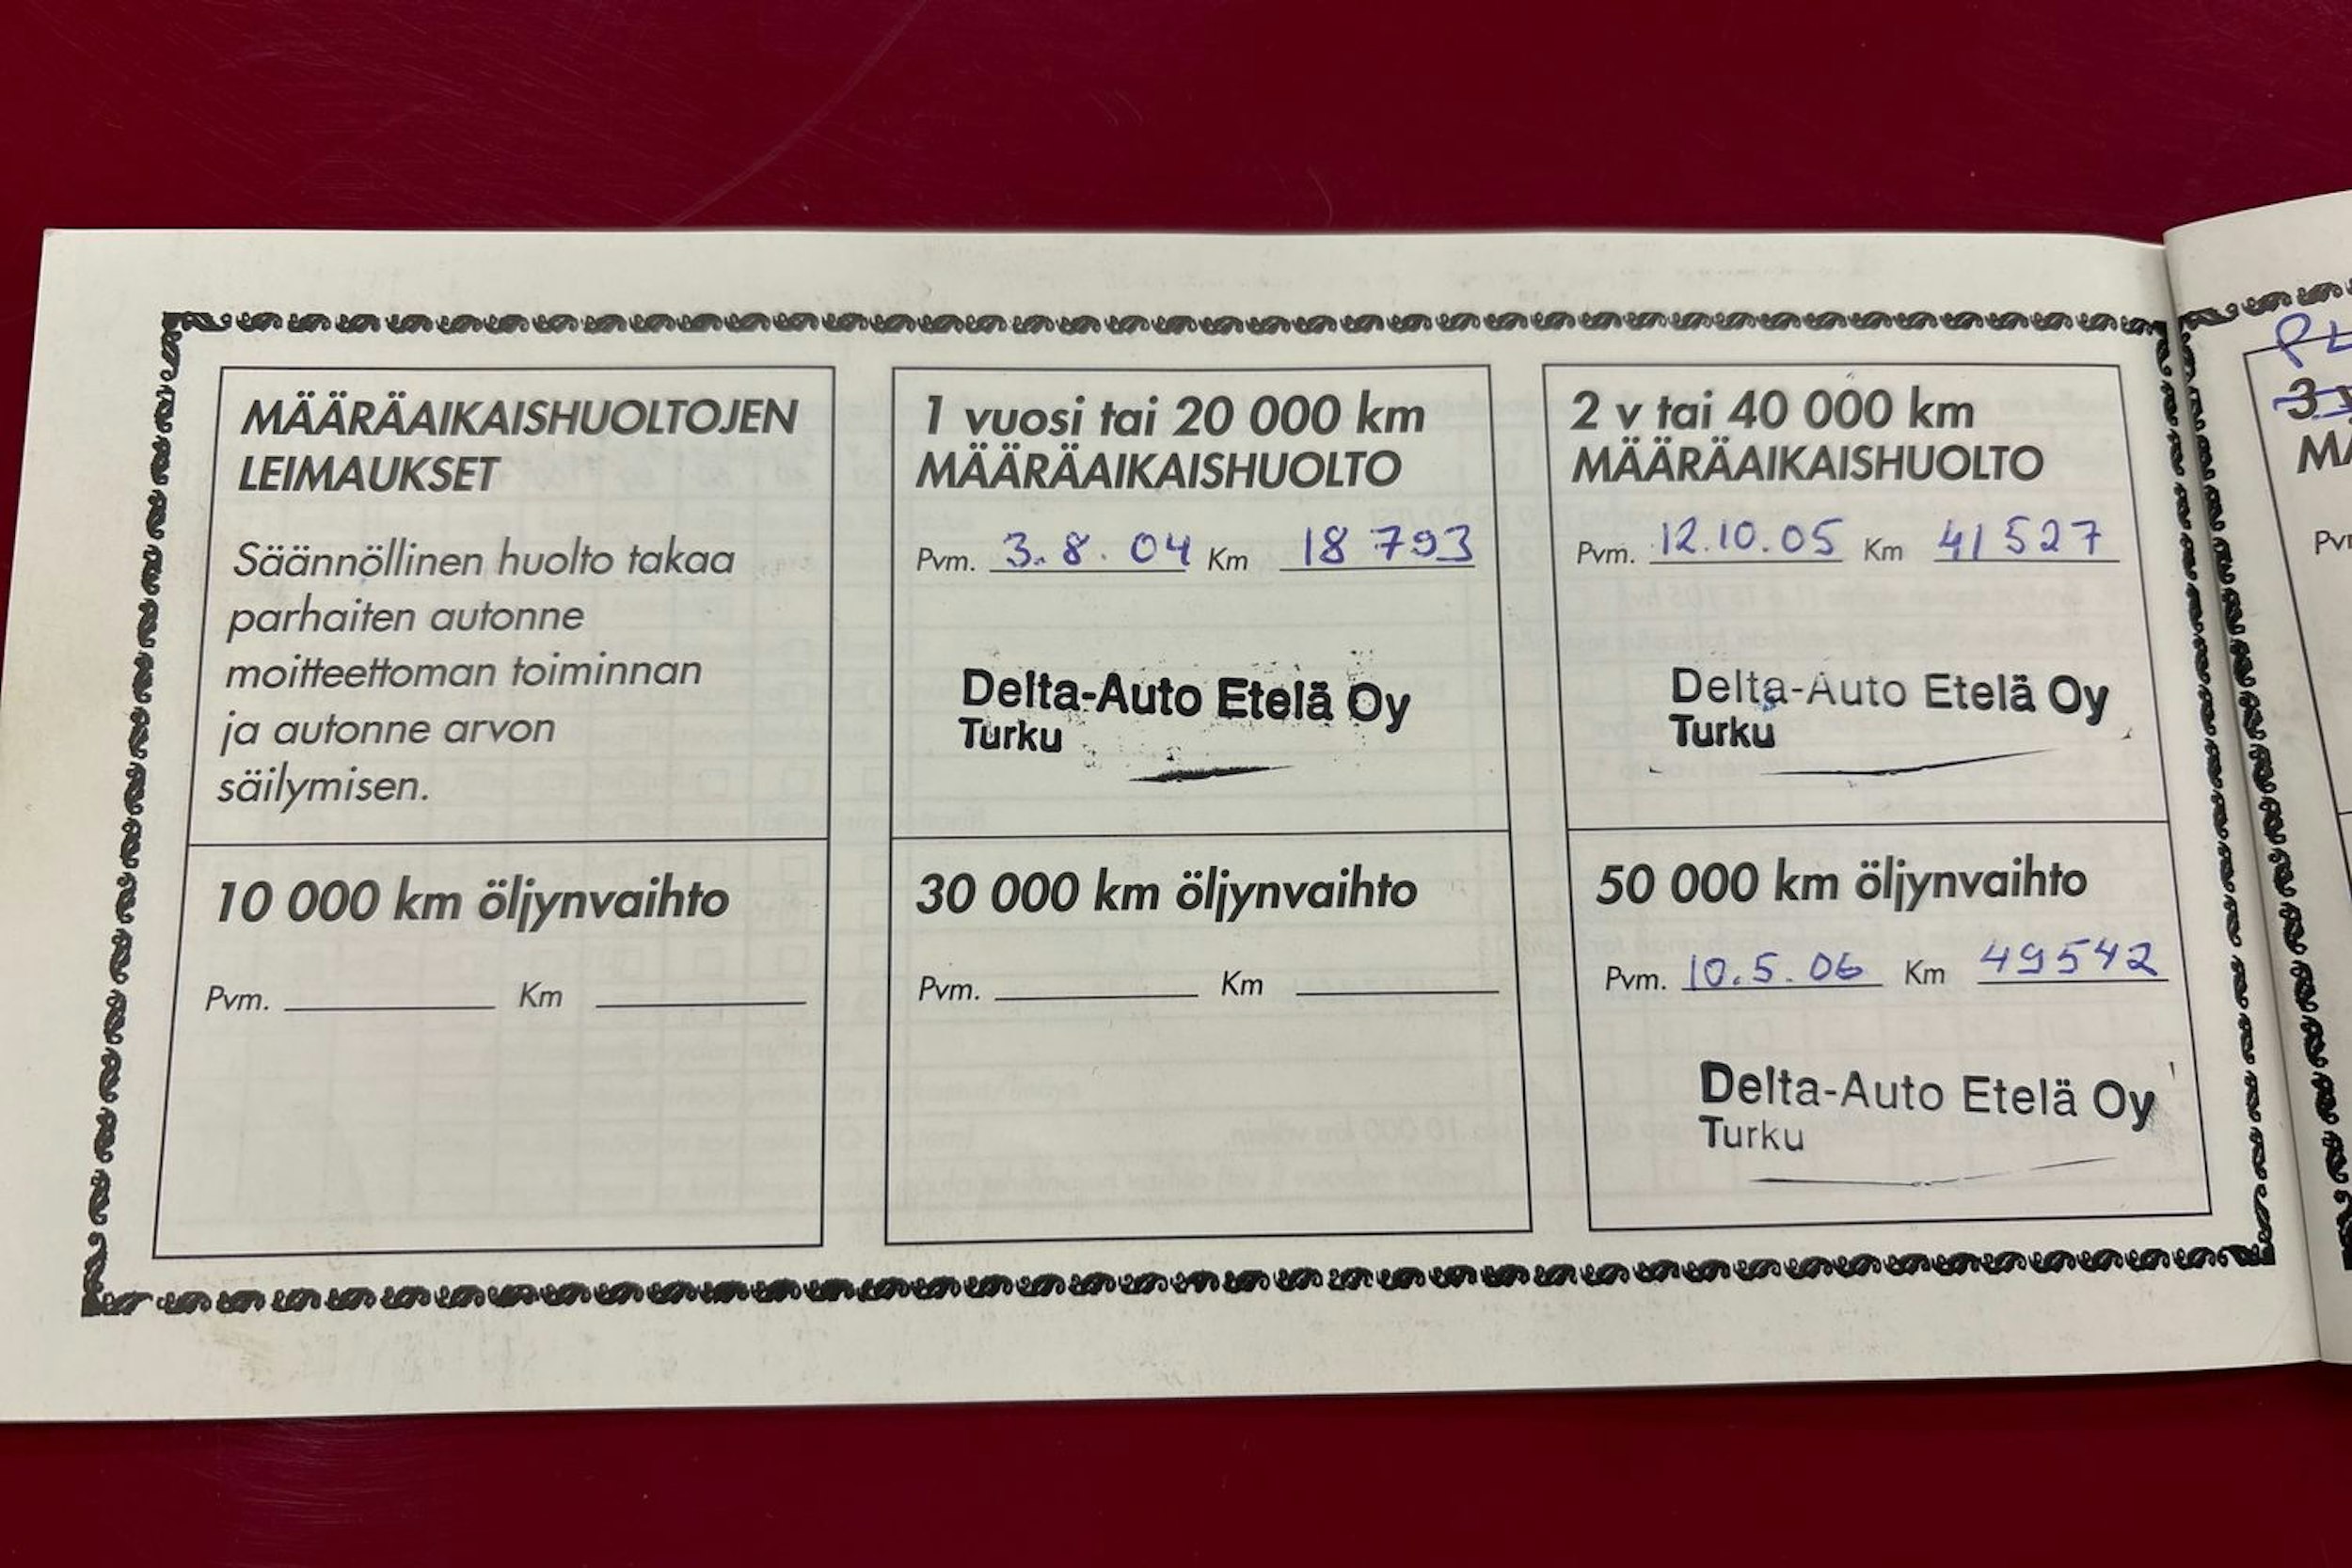 MÄÄRÄAIKAISHUOLTOJEN
LEIMAUKSET
Säännöllinen huolto takaa
parhaiten autonne
moitteettoman toiminnan
ja autonne arvon
säilymisen.
10 000 km öljynvaihto
Pvm. Km
1 vuosi tai 20 000 km
MÄÄRÄAIKAISHUOLTO
Pvm. 3.8.04 Km 18 793
Delta-Auto Etelä Oy
Turku
30 000 km öljynvaihto
Pvm. Km
2 v tai 40 000 km
MÄÄRÄAIKAISHUOLTO
Pvm. 12.10.05 Km 41527
Delta-Auto Etelä Oy
Turku
50 000 km öljynvaihto
Pvm. 10.5.06 Km 49542
Delta-Auto Etelä Oy
Turku